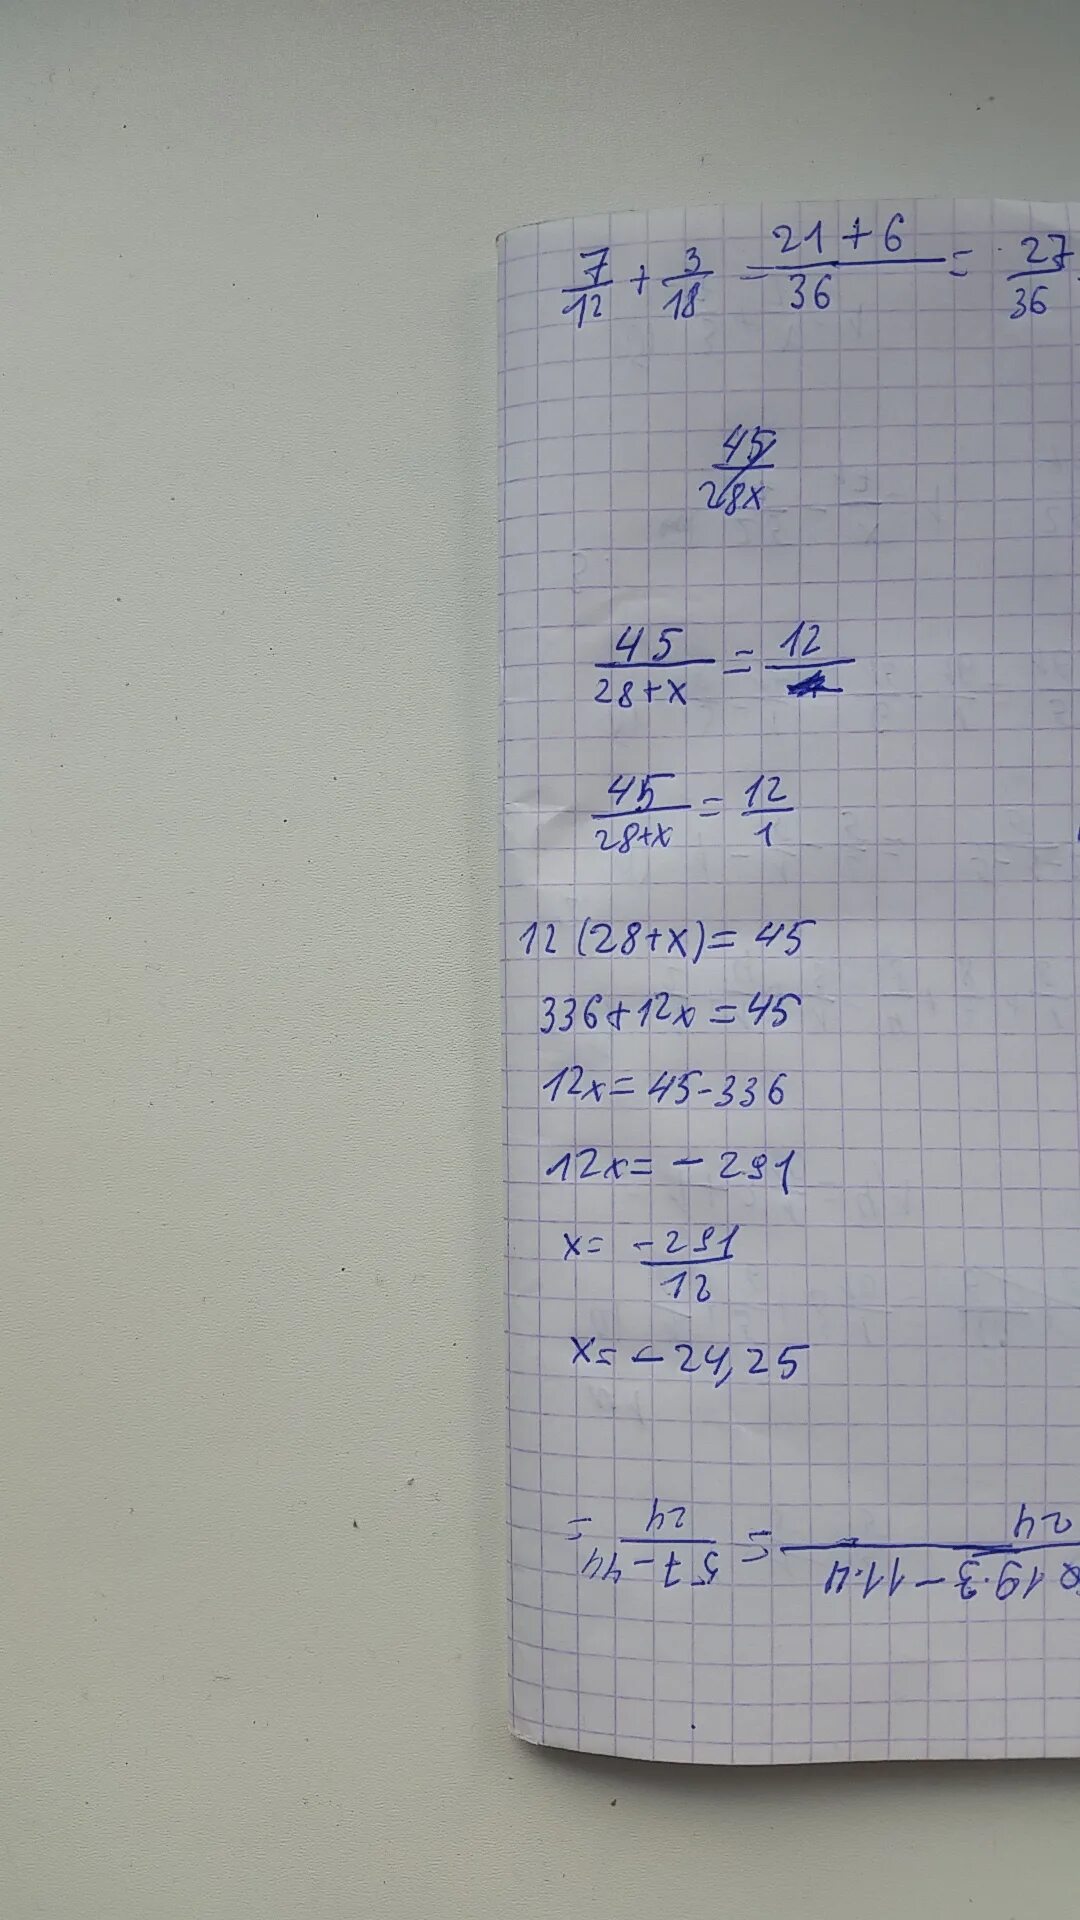 7/12 + 3/18 = (21 + 6)/36 = 27/36
45/28x
45/(28+x) = 12/
45/(28+x) = 12/1
12 (28+x) = 45
336+12x = 45
12x = 45-336
12x = - 291
x = -291/12
x = - 24,25
19·3 - 11·4/24 = 57-44/24 =